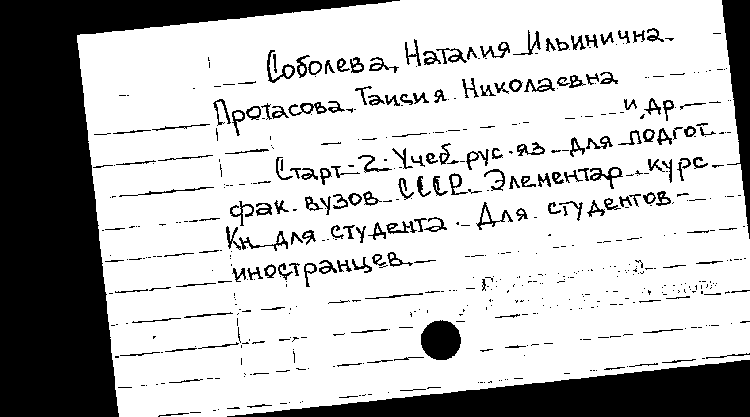 Соболева, Наталия Ильинична.
Протасова, Таисия Николаевна
и др.
Старт-2. Учеб. рус. яз. для подгот.
фак. вузов СССР. Элементар. курс.
Кн. для студента. Для студентов-
иностранцев.